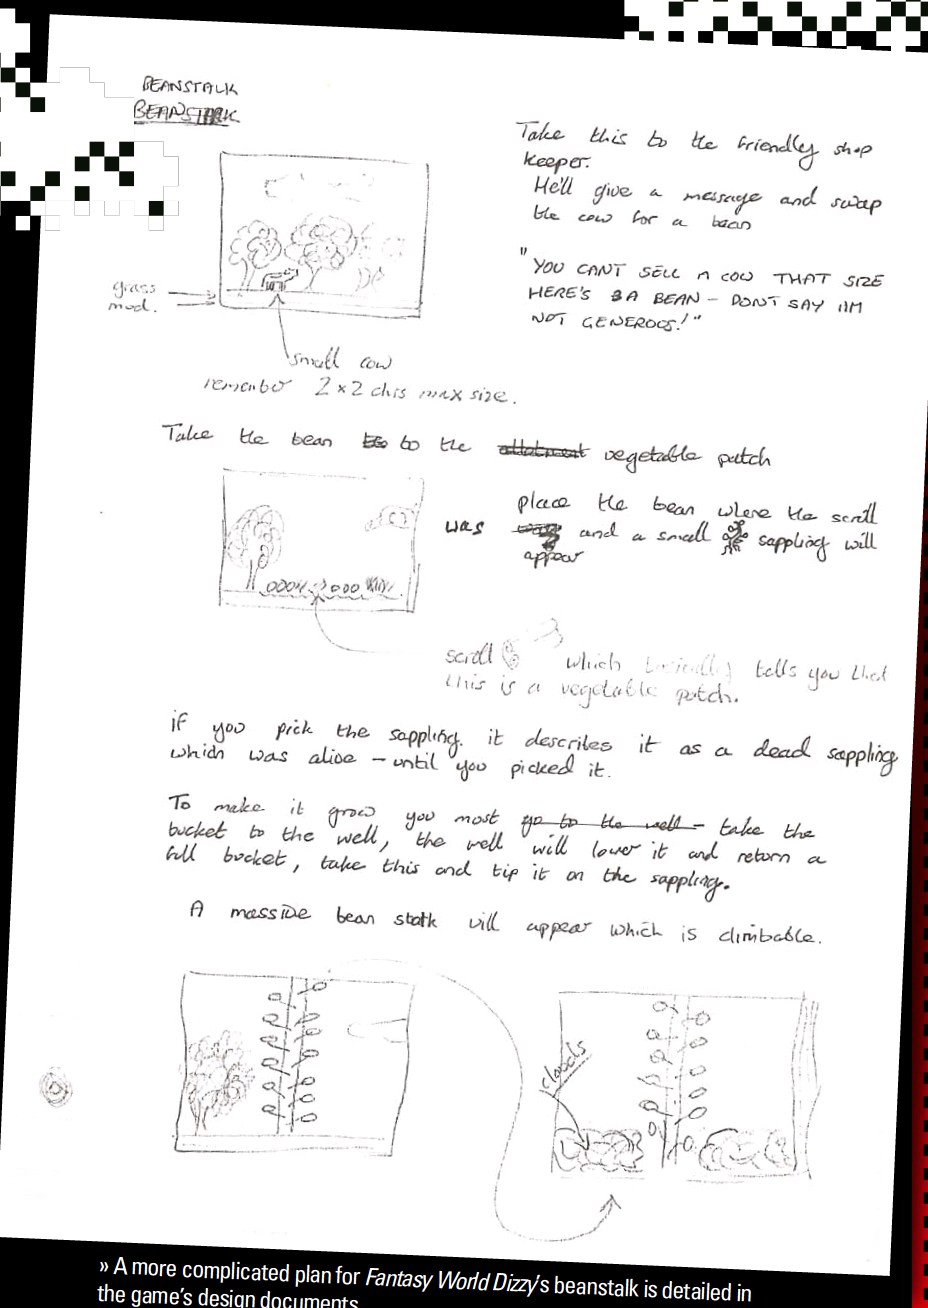 BEANSTALK
BEANSTALK
Take this to the friendly shop
keeper.
He'll give a message and swap
the cow for a bean
"YOU CANT SELL A COW THAT SIZE
HERE'S A BEAN – DONT SAY IIM
NOT GENEROUS!"
grass
mud.
small cow
remember 2 x 2 chrs max size.
Take the bean to the allotment vegetable patch
place the bean where the scroll
was and a small sappling will
appear
scroll which basically tells you that
this is a vegetable patch.
if you pick the sappling. it describes it as a dead sappling
which was alive – until you picked it.
To make it grow you most go to the well – take the
bucket to the well, the well will lower it and return a
full bucket, take this and tip it on the sappling.
A massive bean stalk will appear which is climbable.
clouds
» A more complicated plan for Fantasy World Dizzy's beanstalk is detailed in
the game's design documents